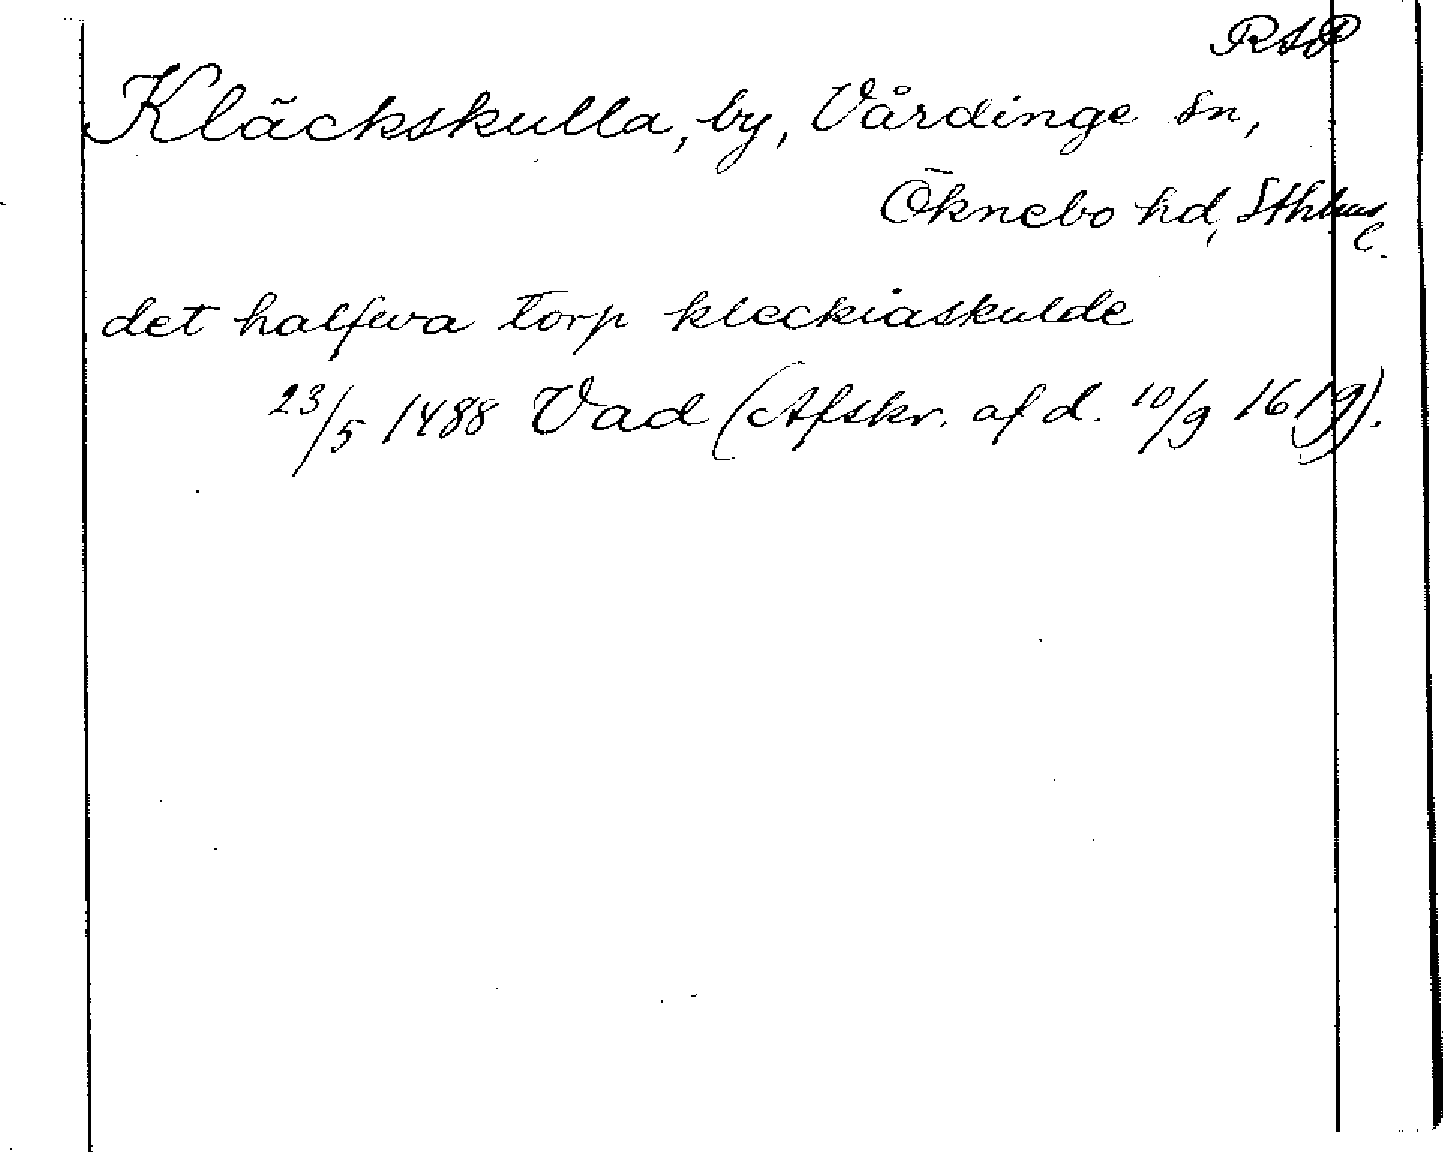 RAP
Kläckskulla, by, Vårdinge sn,
Öknebo hd, Sthlms
l.
det halfwa torp kleckiaskulde
23/5 1488 Vad (Afskr. af d. 10/9 1619).